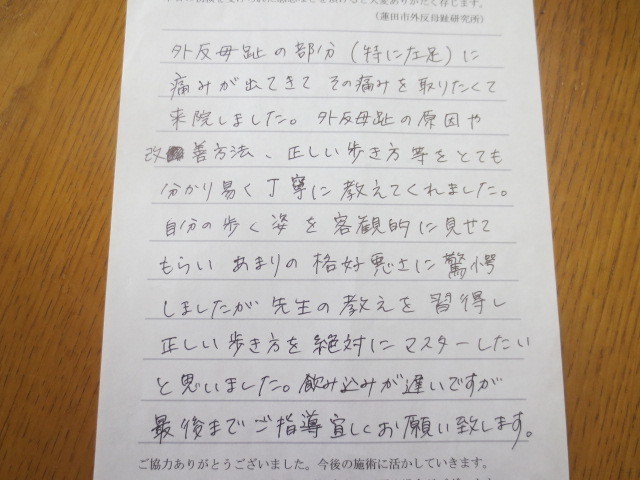 大変ありがたく存じます。
（蓮田市外反母趾研究所）
外反母趾の部分（特に左足）に
痛みが出てきて その痛みを取りたくて
来院しました。外反母趾の原因や
改善方法、正しい歩き方等をとても
分かり易く丁寧に教えてくれました。
自分の歩く姿を客観的に見せて
もらい あまりの格好悪さに驚愕
しましたが先生の教えを習得し
正しい歩き方を絶対にマスターしたい
と思いました。飲み込みが遅いですが
最後までご指導宜しくお願い致します。
ご協力ありがとうございました。今後の施術に活かしていきます。